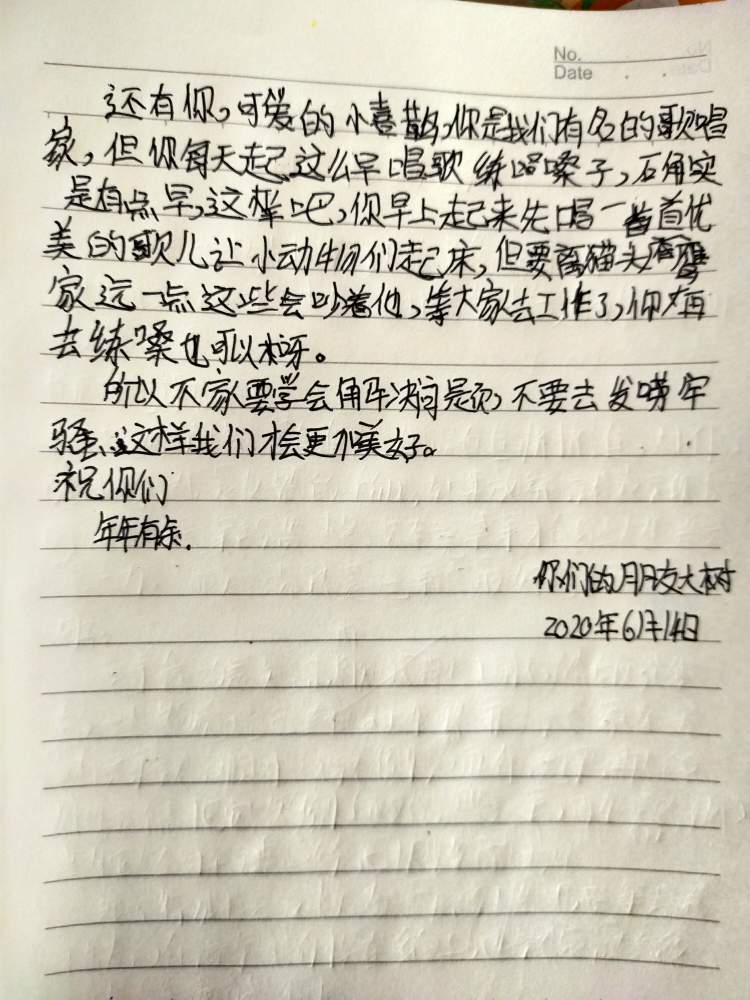 No.
Date
还有你,可爱的小喜鹊,你是我们有名的歌唱
家,但你每天起这么早唱歌练嗓子,确实
是有点早,这样吧,你早上起来先唱一首优
美的歌儿让小动物们起床,但要离猫头鹰
家远一点这些会吵着他,等大家去工作了,你再
去练嗓也可以呀。
所以大家要学会解决问题,不要去发唠牢
骚,这样我们才会更加美好。
祝你们
年年有余.
你们的朋友大树
2020年6月14日